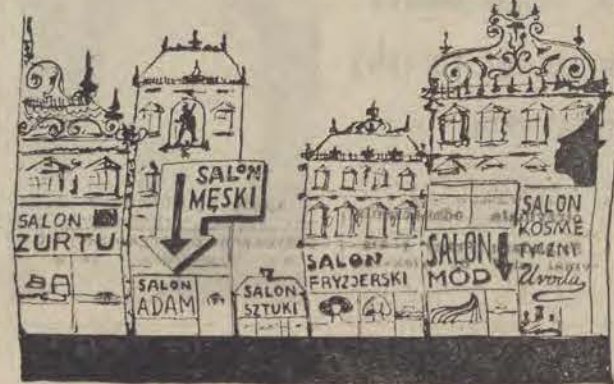 SALON
ZURTU
SALON
MĘSKI
SALON
ADAM
SALON
SZTUKI
SALON
FRYZJERSKI
SALON
MÓD
SALON
KOSME
TYCZNY
Uroda